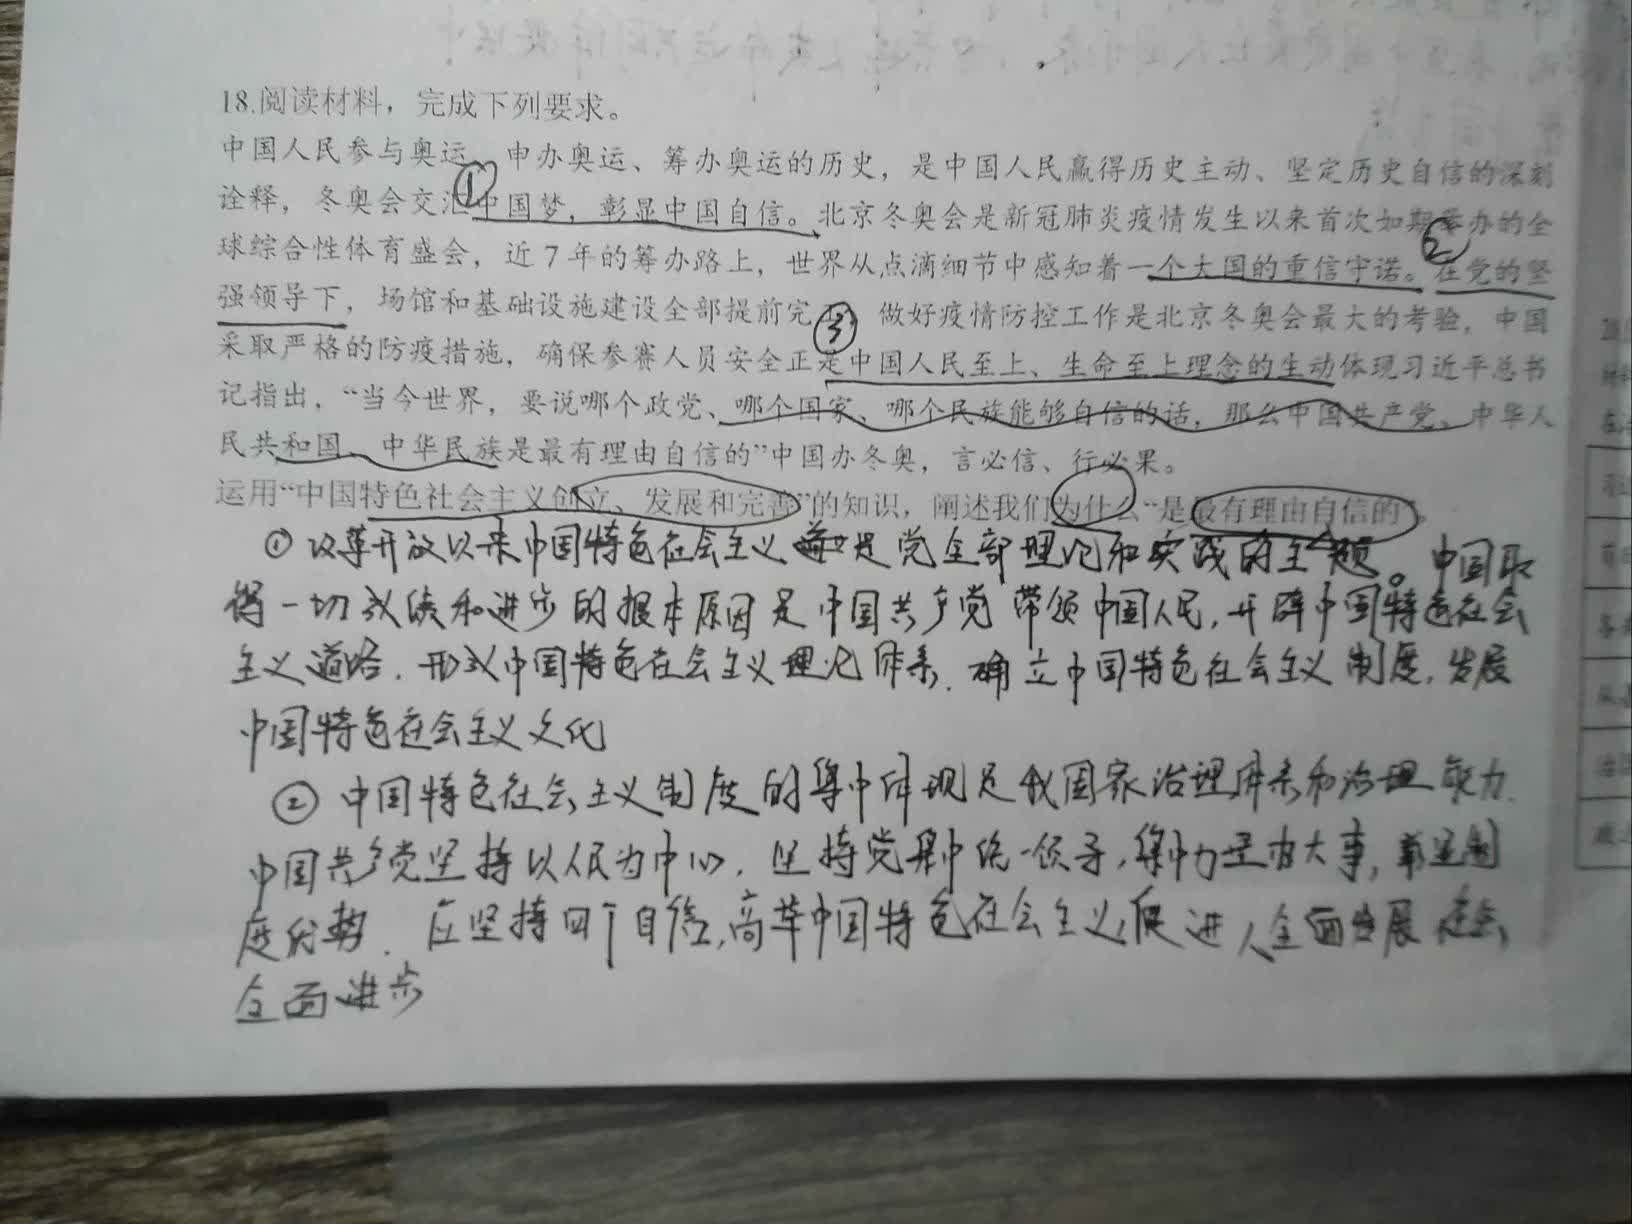 18.阅读材料，完成下列要求。
中国人民参与奥运、申办奥运、筹办奥运的历史，是中国人民赢得历史主动、坚定历史自信的深刻
诠释，冬奥会交汇中国梦，彰显中国自信。北京冬奥会是新冠肺炎疫情发生以来首次如期举办的全
球综合性体育盛会，近7年的筹办路上，世界从点滴细节中感知着一个大国的重信守诺。在党的坚
强领导下，场馆和基础设施建设全部提前完 做好疫情防控工作是北京冬奥会最大的考验，中国
采取严格的防疫措施，确保参赛人员安全正是中国人民至上、生命至上理念的生动体现习近平总书
记指出，“当今世界，要说哪个政党、哪个国家、哪个民族能够自信的话，那么中国共产党、中华人
民共和国、中华民族是最有理由自信的”中国办冬奥，言必信、行必果。
运用“中国特色社会主义创立、发展和完善”的知识，阐述我们为什么“是最有理由自信的”。
①改革开放以来中国特色社会主义是党全部理论和实践的主题。中国取
得一切成绩和进步的根本原因是中国共产党带领中国人民，开辟中国特色社会
主义道路，形成中国特色社会主义理论体系，确立中国特色社会主义制度，发展
中国特色社会主义文化
②中国特色社会主义制度的集中体现是我国国家治理体系和治理能力.
中国共产党坚持以人民为中心，坚持党集中统一领导，集中力量办大事，彰显制
度优势. 应坚持四个自信，高举中国特色社会主义，促进人全面发展 社会
全面进步
① ② ③